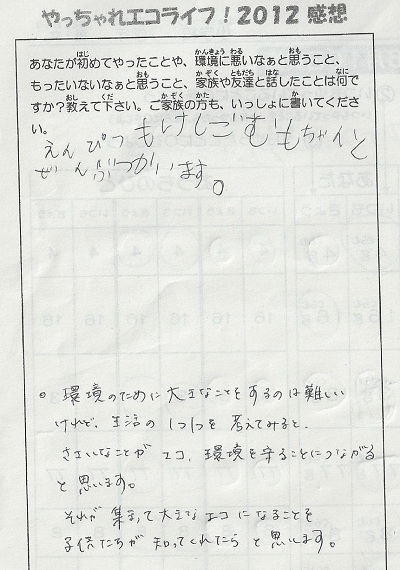 やっちゃれエコライフ！2012 感想
あなたが初めてやったことや、環境に悪いなぁと思うこと、
もったいないなぁと思うこと、家族や友達と話したことは何で
すか？教えて下さい。ご家族の方も、いっしょに書いてくださ
い。
えんぴつもけしごむもちゃんと
ぜんぶつかいます。
。環境のために大きなことをするのは難しい
けれど、生活の1つ1つを考えてみると、
ささいなことがエコ、環境を守ることにつながる
と思います。
それが集まって大きなエコになることを
子供たちが知ってくれたらと思います。